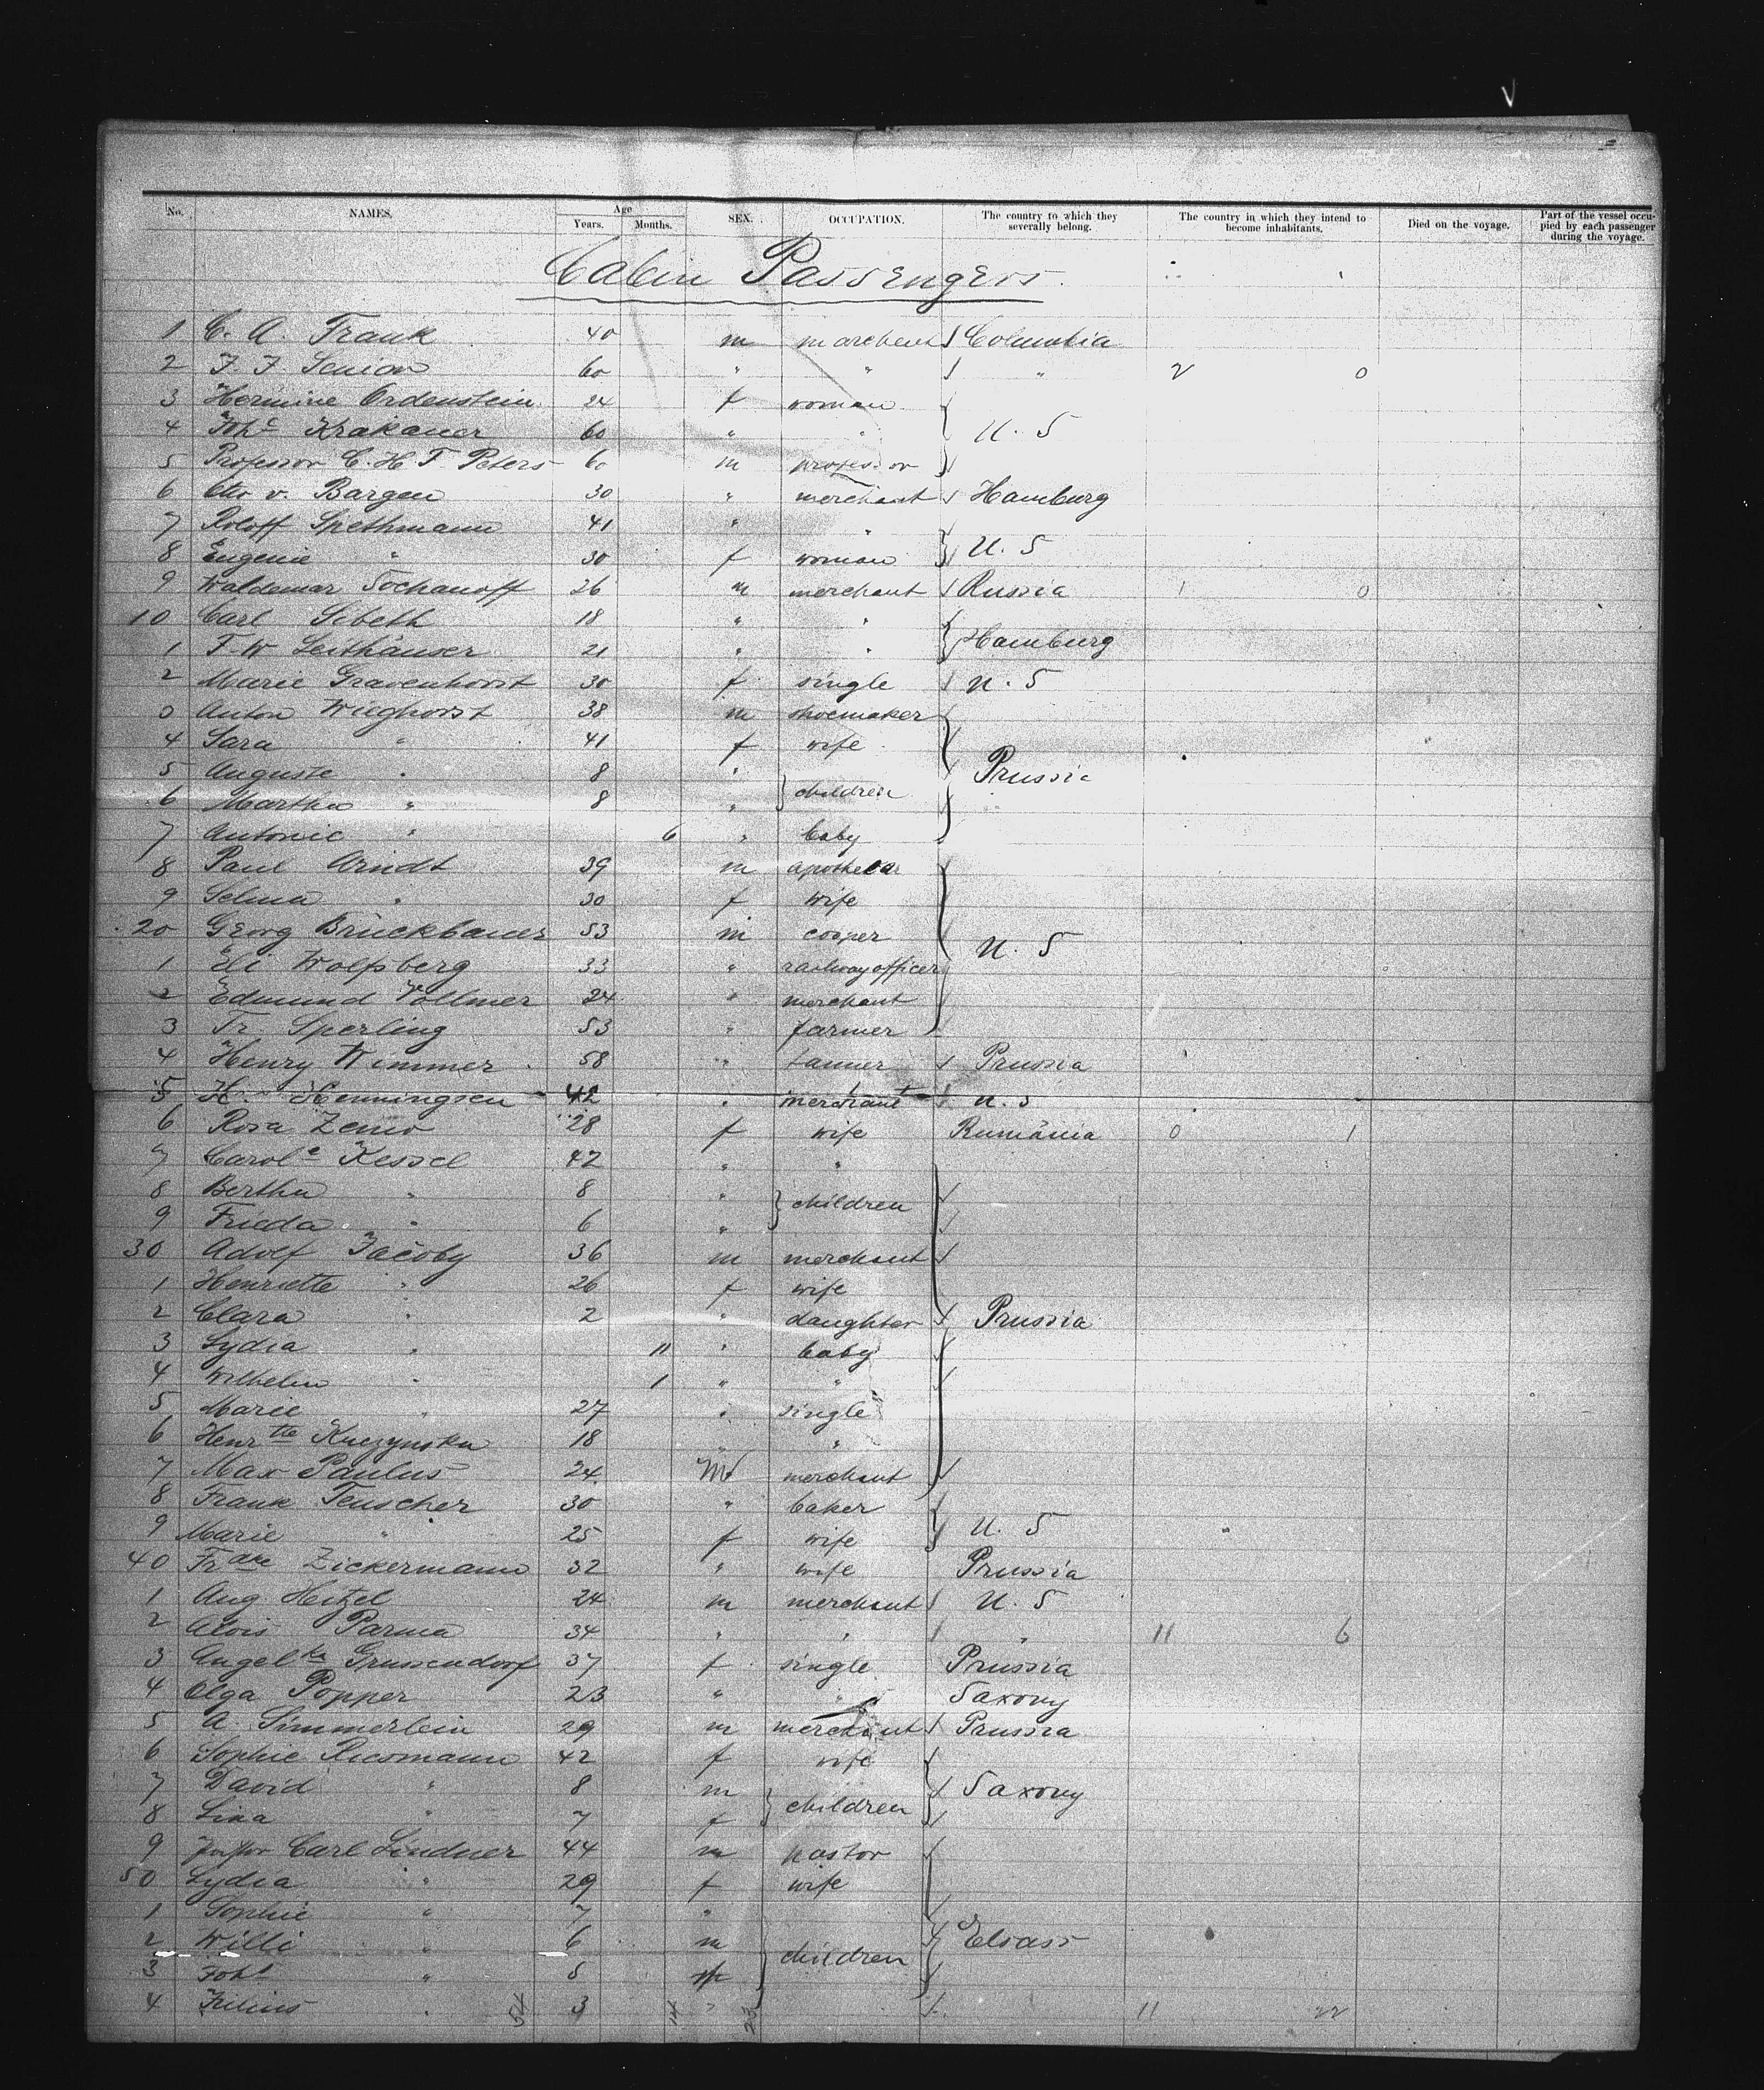 No. NAMES. Age Years. Months. SEX. OCCUPATION. The country to which they severally belong. The country in which they intend to become inhabitants. Died on the voyage. Part of the vessel occupied by each passenger during the voyage.
Cabin Passengers.
1 C. A. Frank 40 m marchent Columbia
2 J. J. Senior 60 " " " 2 0
3 Hermine Ordenstein 24 f woman
4 Joh.e Krakauer 60 " " U. S
5 Professor C. H. F. Peters 60 m professor
6 Otto v. Bargen 30 " merchant Hamburg
7 Roloff Spethmann 41 " "
8 Eugenie " 30 f woman U. S
9 Waldemar Sochanoff 26 m merchant Russia 1 0
10 Carl Sibeth 18 " "
1 F. W Leithäuser 21 " " Hamburg
2 Marie Gravenhorst 30 f single U. S
3 Anton Wieghorst 38 m shoemaker
4 Sara " 41 f wife
5 Auguste " 8 " children Prussia
6 Martha " 8 "
7 Antonie " 6 " baby
8 Paul Arndt 39 m apothecar
9 Selma " 30 f wife
20 Georg Brückbauer 53 m cooper U. S
1 Eli Wolfsberg 33 " railway officer
2 Edmund Vollmer 24 " merchant
3 Fr. Sperling 53 " farmer
4 Henry Wimmer 58 " tanner Prussia
5 H. Henningsen 42 " merchant U. S
6 Rosa Zemo 28 f wife Rumänia 0 1
7 Carol.e Kessel 42 " "
8 Bertha " 8 " children
9 Frieda " 6 "
30 Adolf Jacoby 36 m merchant
1 Henriette " 26 f wife
2 Clara " 2 " daughter Prussia
3 Lydia " 11 " baby
4 Wilhelm " 1 " "
5 Marie " 27 " single
6 Henr.tte Kuczynska 18 " "
7 Max Paulus 24 M merchant
8 Frank Teuscher 30 " baker
9 Marie " 25 f wife U. S
40 Zickermann 32 " wife Prussia
1 Aug. Hetzel 24 m merchant U. S
2 Alois Parma 34 " " " 11 6
3 Angel.ka Grussendorf 37 f single Prussia
4 Olga Popper 23 " " Saxony
5 A. Simmerlein 29 m merchant Prussia
6 Sophie Riesmann 42 f wife
7 David " 8 m children Saxony
8 Lina " 7 f
9 Pastor Carl Lindner 44 m pastor
50 Lydia " 29 f wife
1 Sophie " 7 "
2 Willi " 6 m children Elsass
3 Joh.s " 5
4 Julius " 54 3 14 " 23 11 22